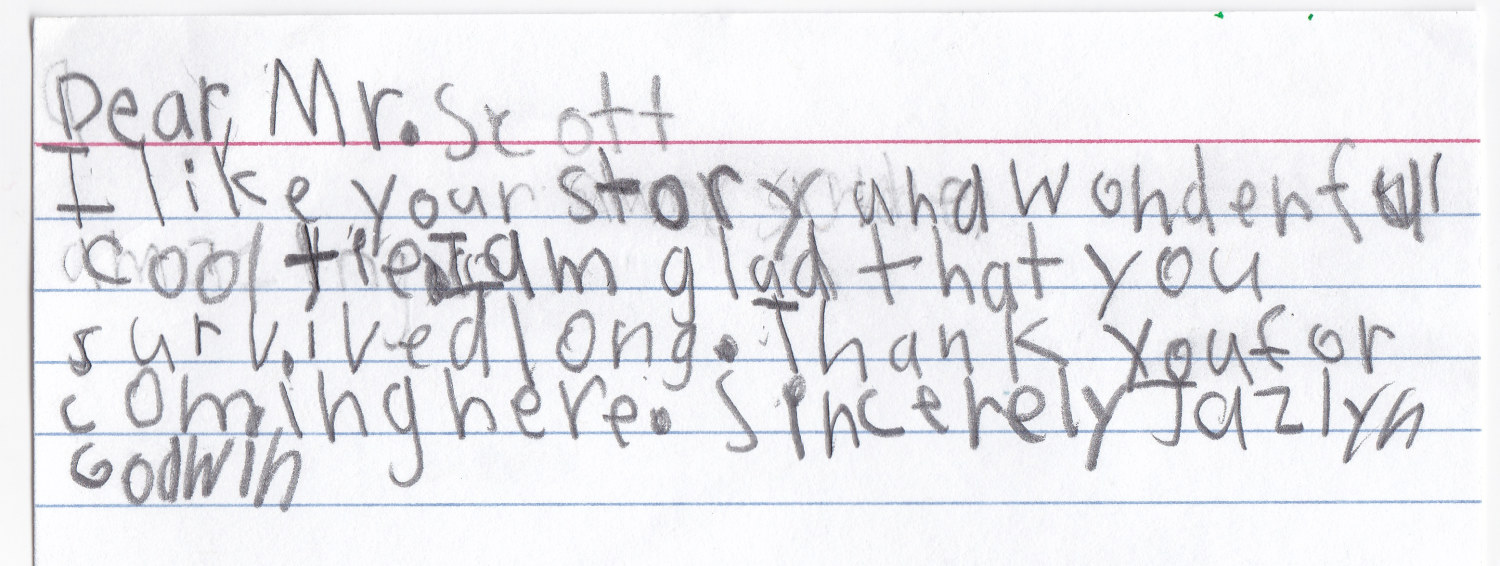 Dear Mr. Scott
I like your story and wonderfull
cool tie I am glad that you
survived long. Thank you for
coming here. Sincerely Jazlyn
Godwin